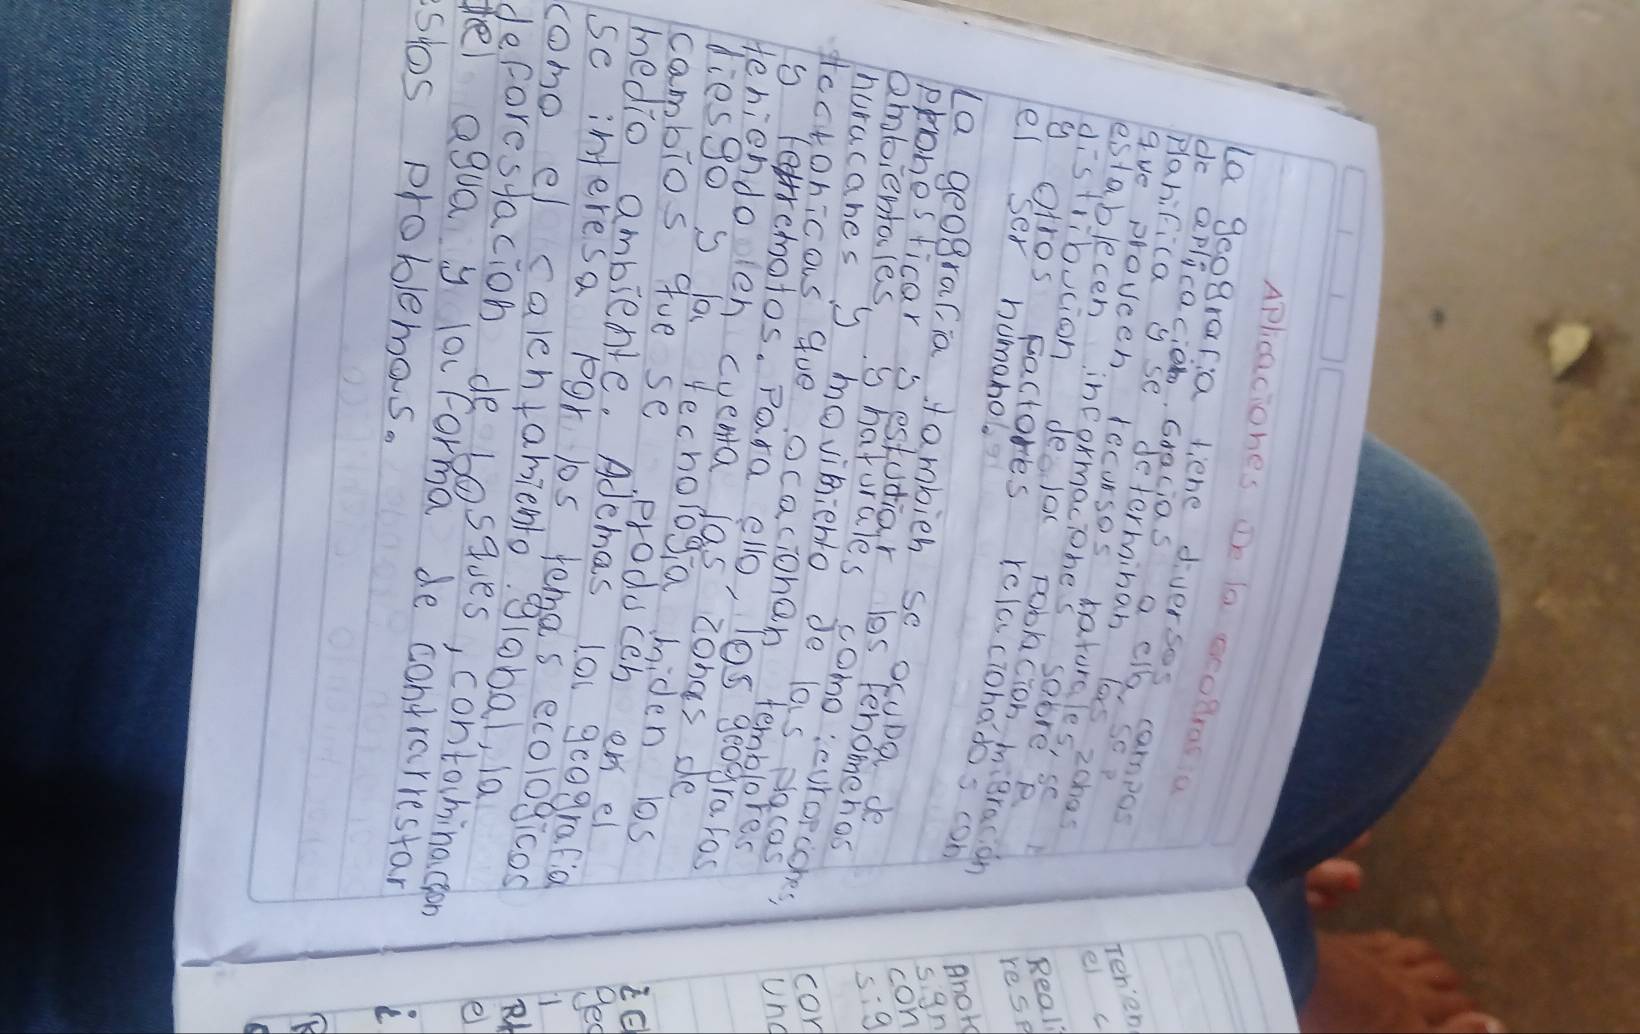 Aplicaciones De la Geografia
La geografia tiene diversos campos
de aplicacion. Gracias a ella se
planifica y se determinan las zonas
que proveen recursos naturales, se
establecen informaciones sobre
distribucion de la poblacion, migracion
y otros factores relacionados con
el ser humano.
La geografia tambien se ocupa de
pronosticar y estudiar los fenomenos
ambientales y naturales como
huracanes y movimiento de las placas
tectonicas que ocacionan temblores
y terremotos. Para ello, los geografos
teniendo en cuenta las zonas de
riesgo y la tecnologia miden los
cambios que se producen en el
medio ambiente. Ademas la geografia
se interesa por los temas ecologicos
como el calentamiento global, la
deforestacion de bosques, contaminacion
del agua y la forma de contrarrestar
estos problemas.
el
Anot
sign
con
sig
con